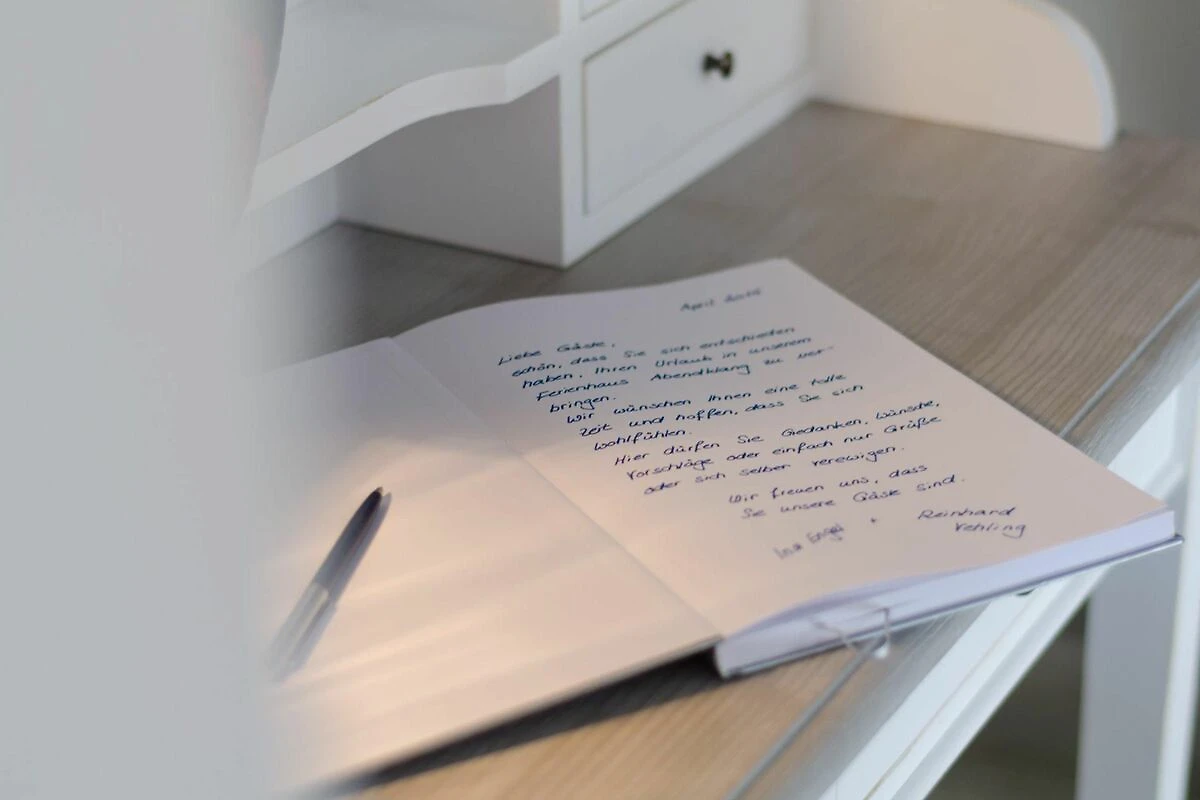 April
Liebe Gäste,
schön, dass Sie sich entschieden
haben, Ihren Urlaub in unserem
Ferienhaus Abendklang zu ver-
bringen.
Wir wünschen Ihnen eine tolle
Zeit und hoffen, dass Sie sich
wohlfühlen.
Hier dürfen Sie Gedanken, Wünsche,
Vorschläge oder einfach nur Grüße
oder sich selber verewigen.
Wir freuen uns, dass
Sie unsere Gäste sind.
Ina Engel + Reinhard
Vehling